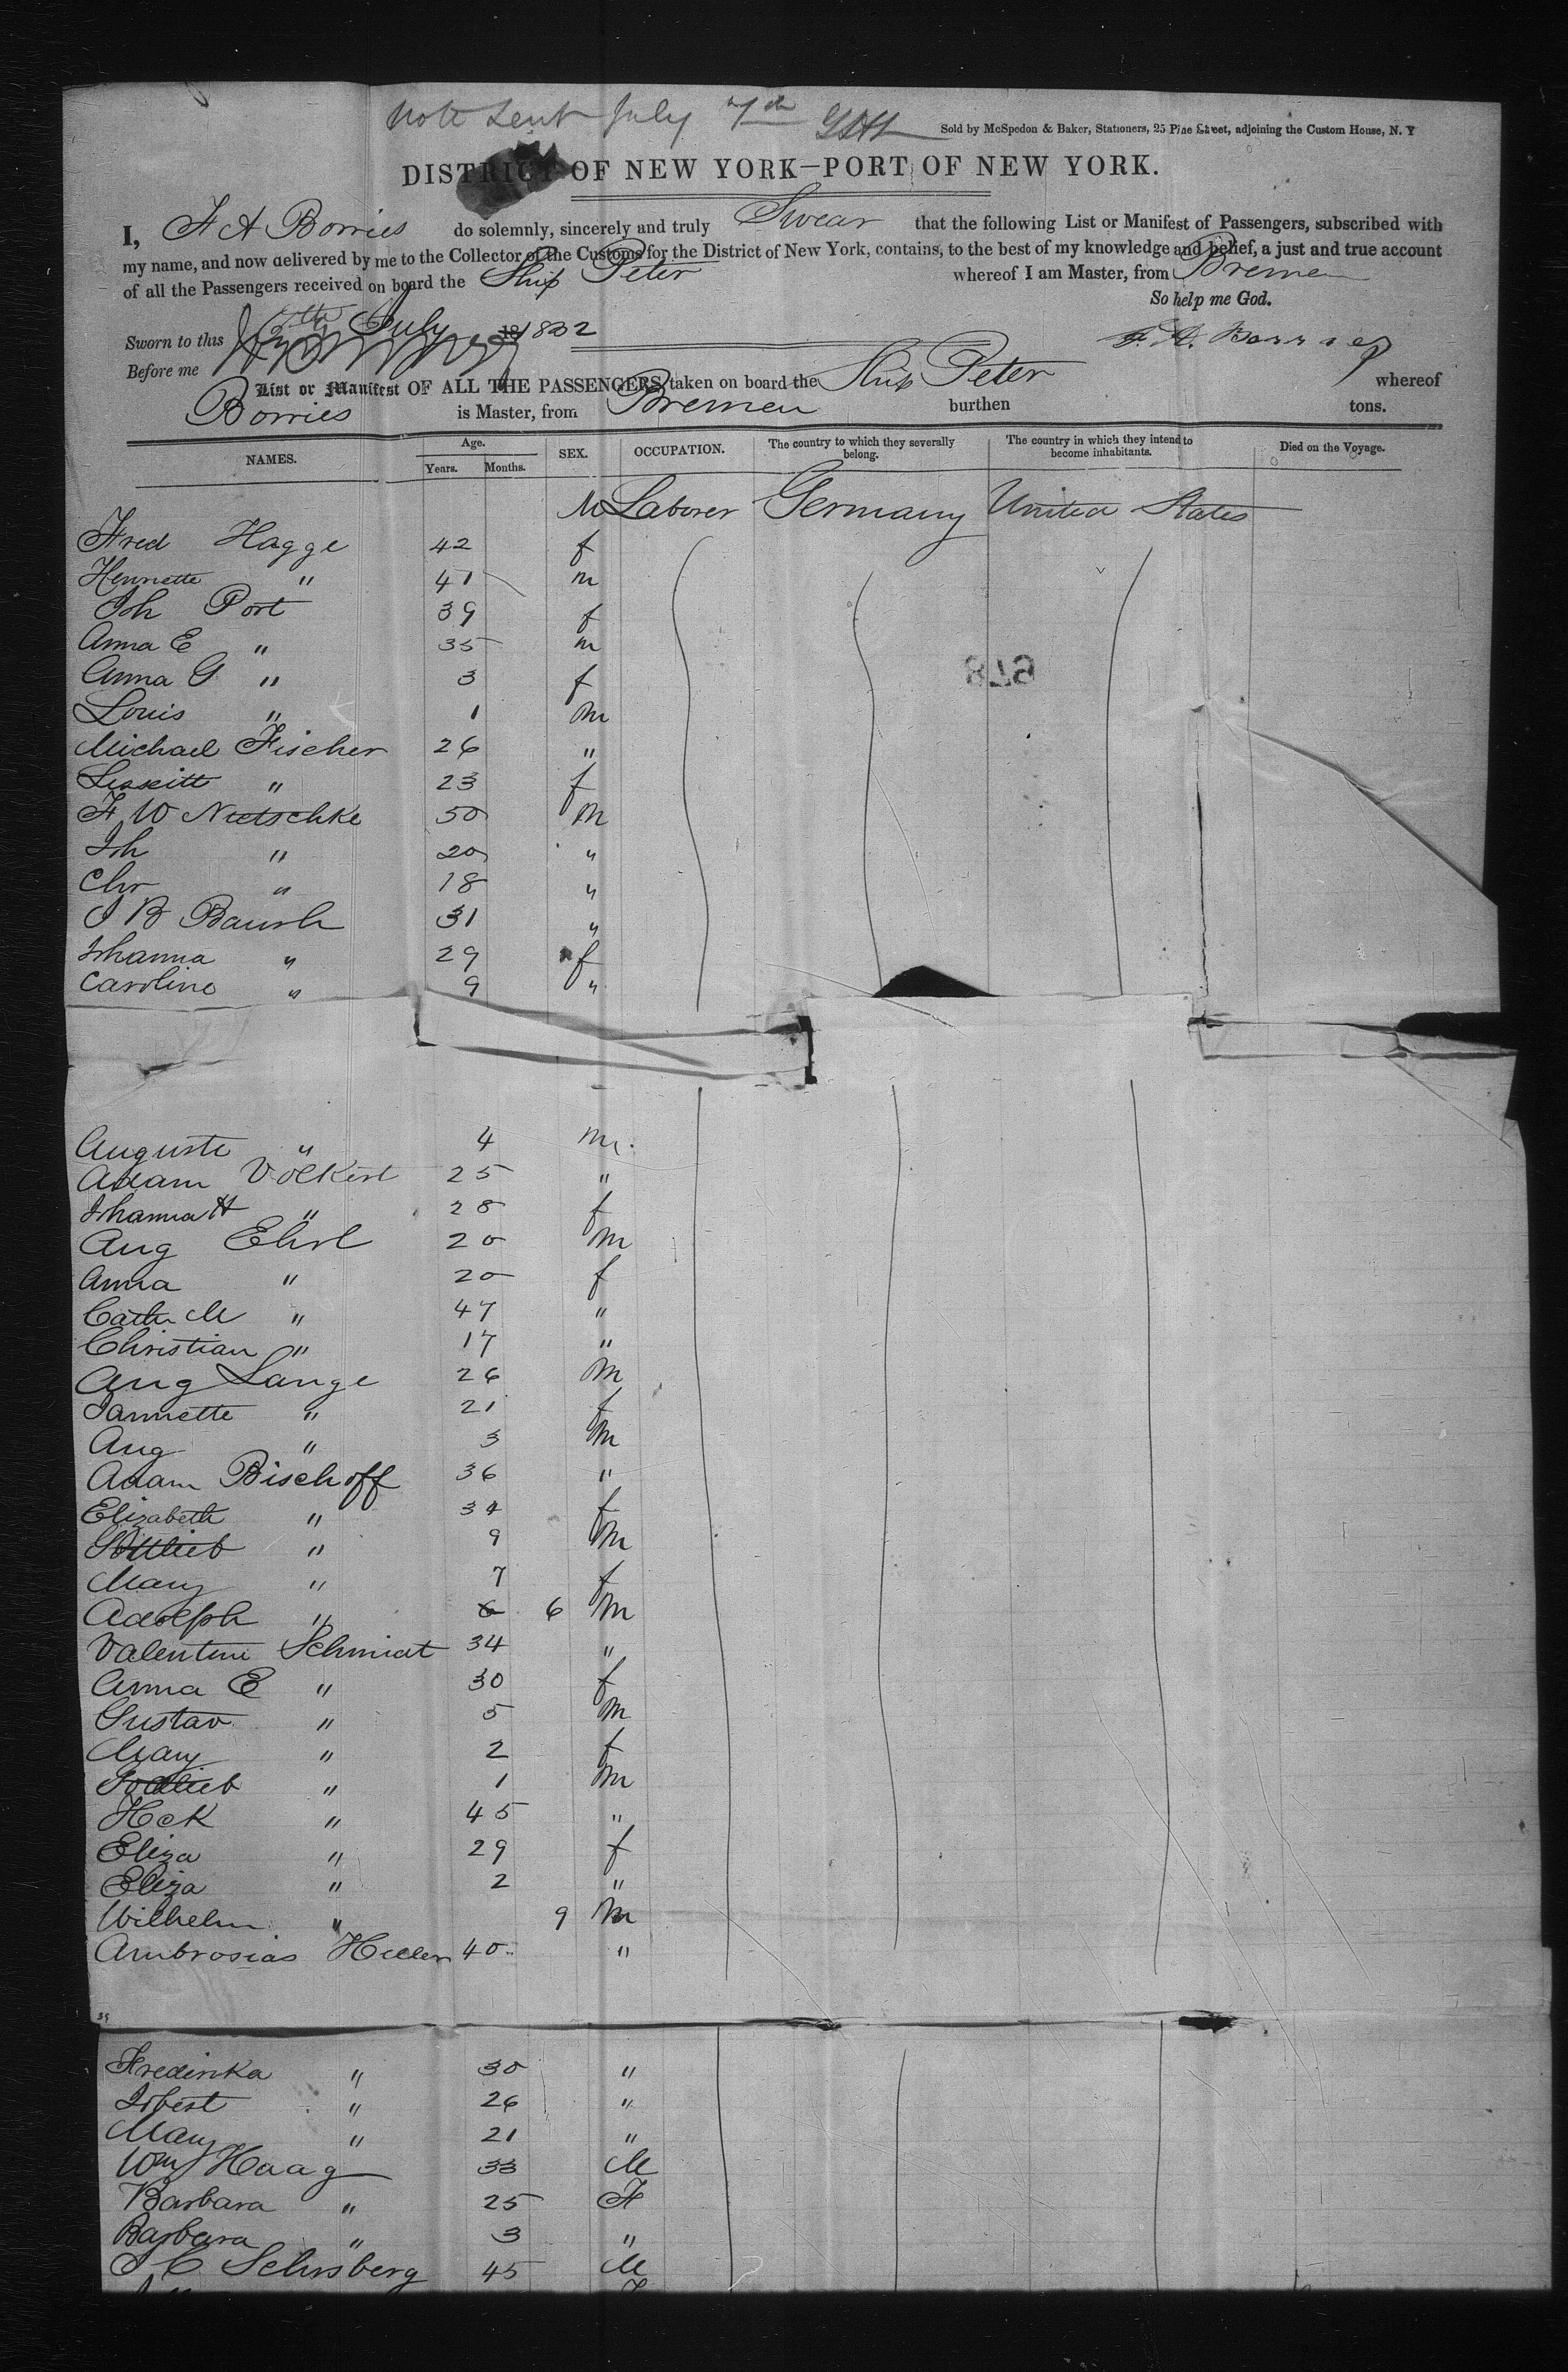 Note sent July 7th
Sold by McSpedon & Baker, Stationers, 25 Pine Street, adjoining the Custom House, N. Y
DISTRICT OF NEW YORK—PORT OF NEW YORK.
I, F A Borries do solemnly, sincerely and truly Swear that the following List or Manifest of Passengers, subscribed with
my name, and now delivered by me to the Collector of the Customs for the District of New York, contains, to the best of my knowledge and belief, a just and true account
of all the Passengers received on board the Ship Peter whereof I am Master, from Bremen
So help me God.
Sworn to this July 18
Before me F. A. Borries
List or Manifest OF ALL THE PASSENGERS taken on board the Ship Peter whereof
Borries is Master, from Bremen burthen tons.
NAMES. Age. Years. Months. SEX. OCCUPATION. The country to which they severally belong. The country in which they intend to become inhabitants. Died on the Voyage.
M Laborer Germany United States
Fred Hagge 42 f
Henriette " 41 m
Joh Port 39 f
Anna E " 35 m
Anna G " 3 f
Louis " 1 m
678
Michael Fischer 26 "
" 23 f
F W Nietschke 50 m
Joh " 20 "
Chr " 18 "
J B Baush 31 "
Johanna " 29 f
Caroline " 9 "
Auguste " 4 m.
Adam Volkert 25 "
Johanna H " 28 f
Aug 20 m
Anna " 20 f
Cath M " 47 "
Christian " 17 "
Aug Lange 26 m
Jannette " 21 f
Aug " 3 m
Adam Bischoff 36 "
Elizabeth " 34 f
Gottlieb " 9 m
Mary " 7 f
Adolph " 6 6 m
Valentine Schmidt 34 "
Anna E " 30 f
Gustav " 5 m
Mary " 2 f
Gottlieb " 1 m
" 45 "
Eliza " 29 f
Eliza " 2 "
Wilhelm " 9 m
Ambrosias 40 "
39
Fredirika " 30 "
" 26 "
Mary " 21 "
Wm Haag 33 M
Barbara " 25 F
Barbara " 3 "
J C Schosberg 45 M